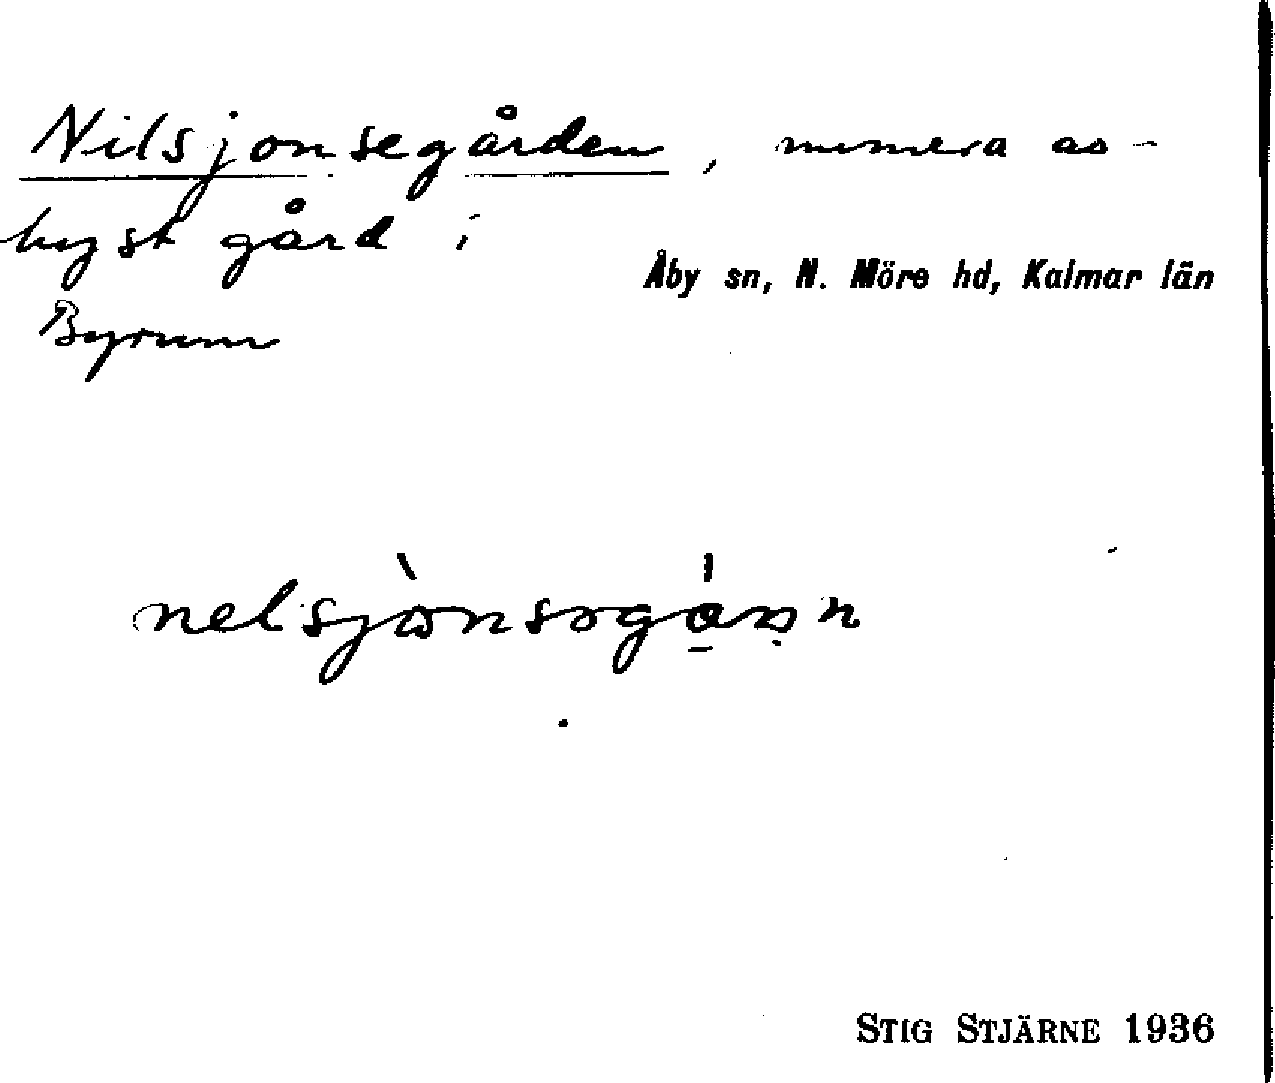 Nilsjonsegården, numera av-
hyst gård i
Åby sn, N. Möre hd, Kalmar län
Byrum
STIG STJÄRNE 1936